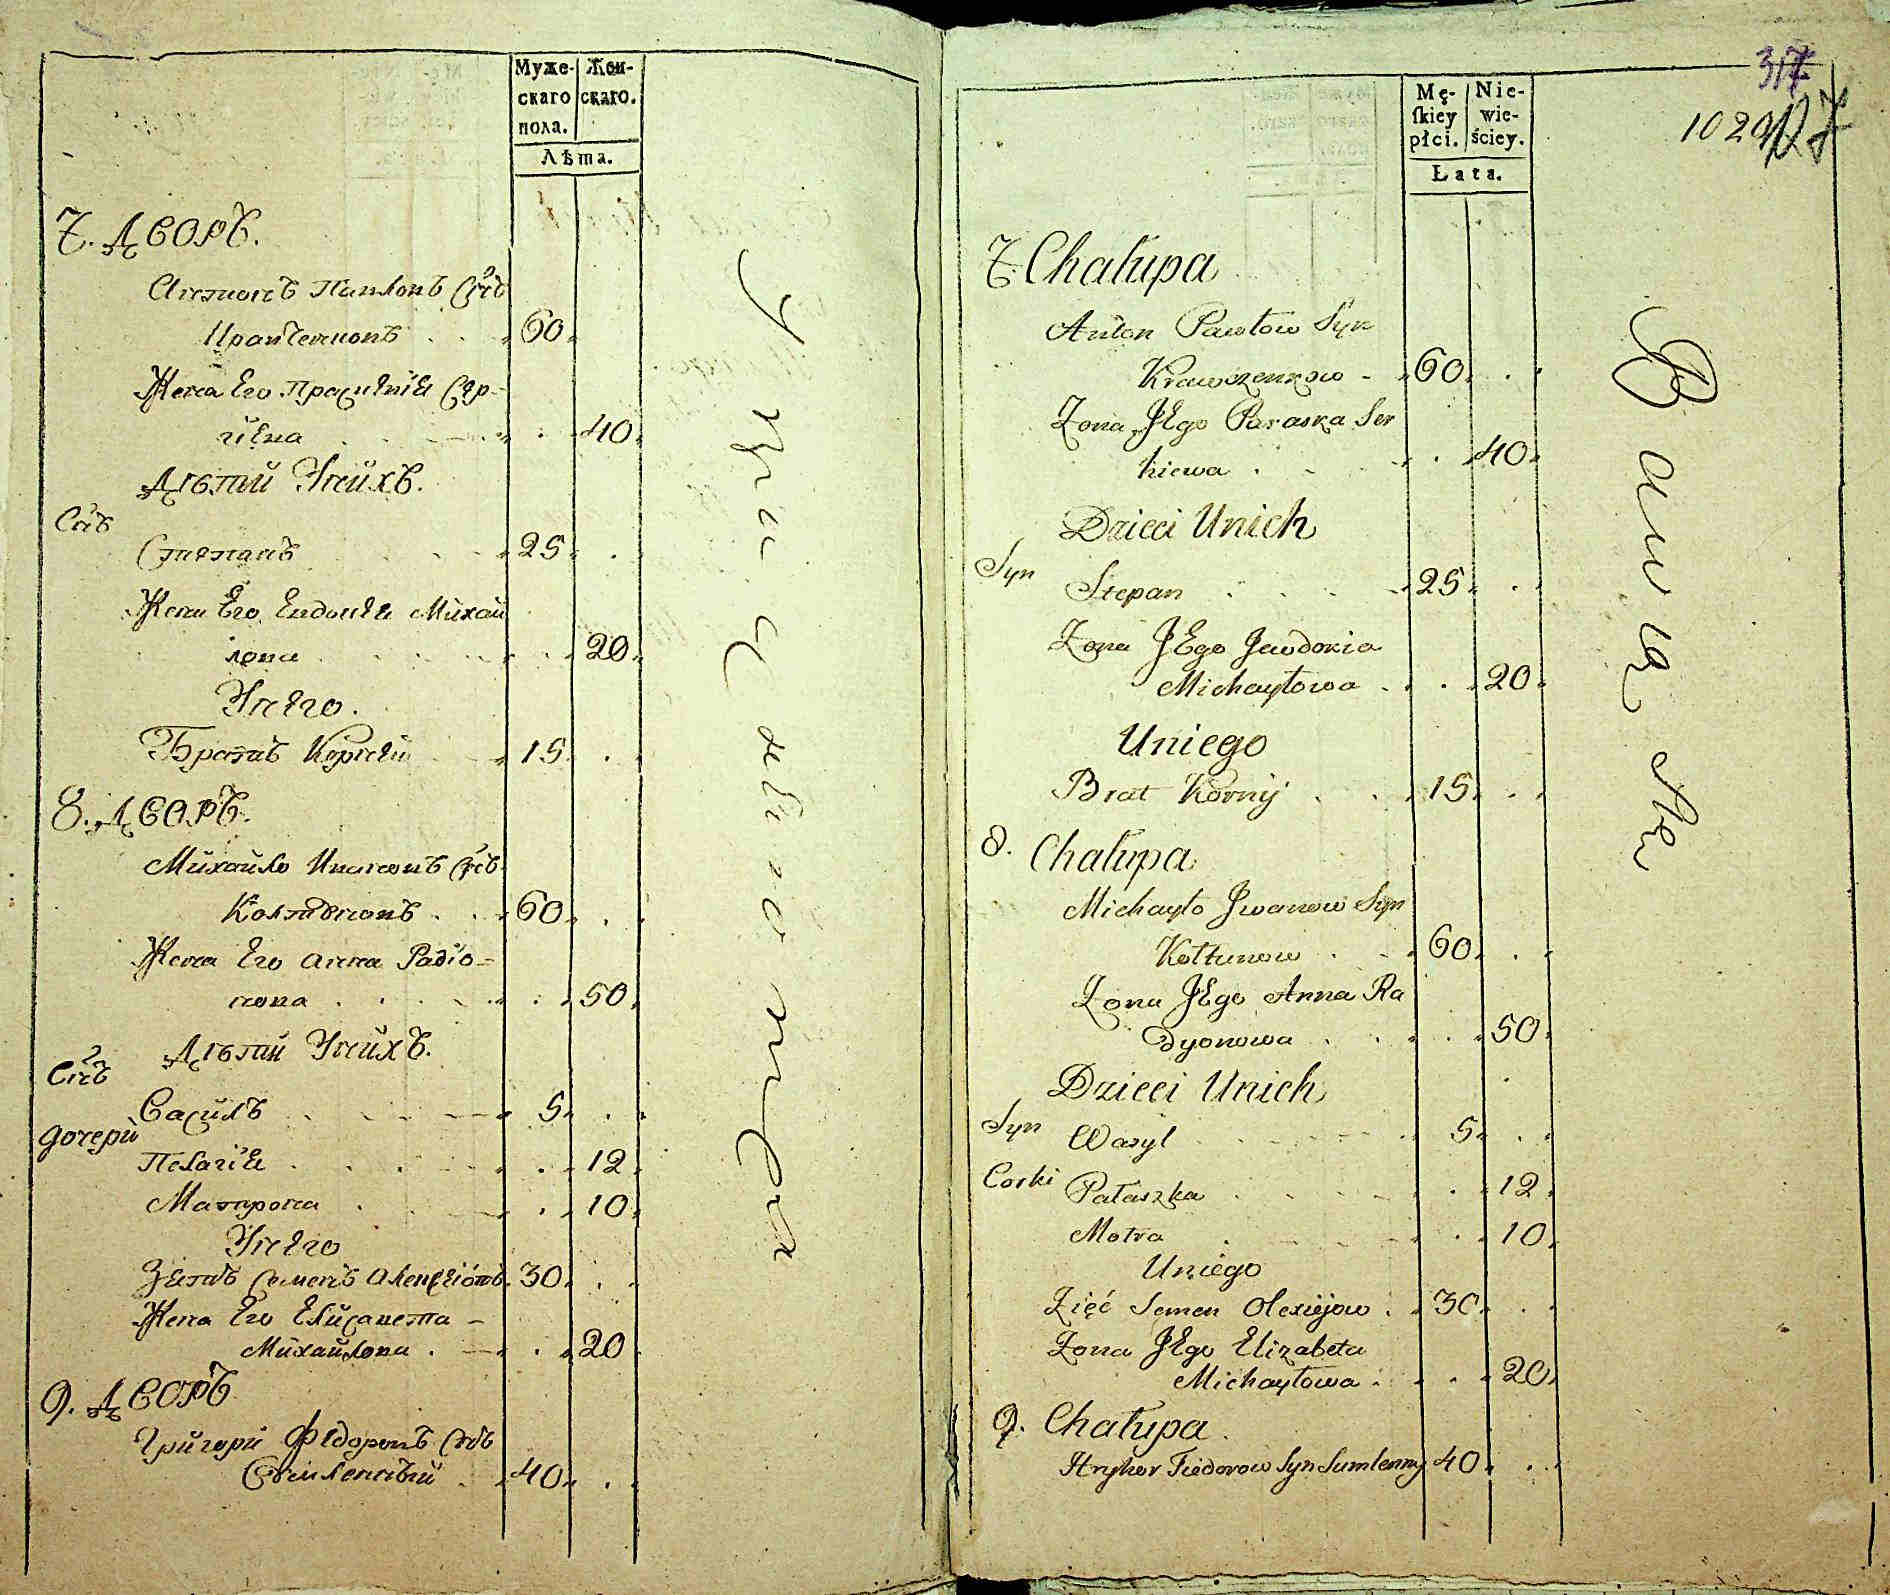 Муже-
скаго
пола.
Жен-
скаго.
Лѣта.
7. Дворъ.
Антонъ Павловъ Снъ
Кравченковъ 60
Жена Его Прасцевiя Сер-
гiева 40
Дѣтий Унихъ.
Снъ
Степанъ 25
Жена Его Евдокiя Михай
лова 20
Унего.
Братъ Корнѣй 15
8. Дворъ.
Михайло Ивановъ Снъ
Колтуновъ 60
Жена Его Анна Радiо-
нова 50
Дѣтий Унихъ.
Снъ
Василь 5
дочери
Пелагiя 12
Матрона 10
Унего
Зять Семенъ Алексѣiовъ 30
Жена Его Елисавета
Михайлова 20
9. Дворъ
Григорй Федоровъ Снъ
40
Mę-
ſkiey
płci.
Nie-
wie-
ściey.
Łata.
317
1029
7 Chałupa
Anton Pawłow Syn
Krawczenkow 60
Zona JEgo Paraska Ser
hiewa 40
Dzieci Unich
Syn
Stepan 25
Zona JEgo Jewdokia
Michayłowa 20
Uniego
Brat Korniy 15
8. Chałupa
Michayło Jwanow Syn
Kołtunow 60
Zona JEgo Anna Ra
dyonowa 50
Dzieci Unich
Syn Wasyl 5
Corki Pałaszka 12
Motra 10
Uniego
Zięć Semen Olexiejow 30
Zona JEgo Elizabeta
Michayłowa 20
9. Chałupa
Hryhor Fiedorow Syn Sumlenny 40